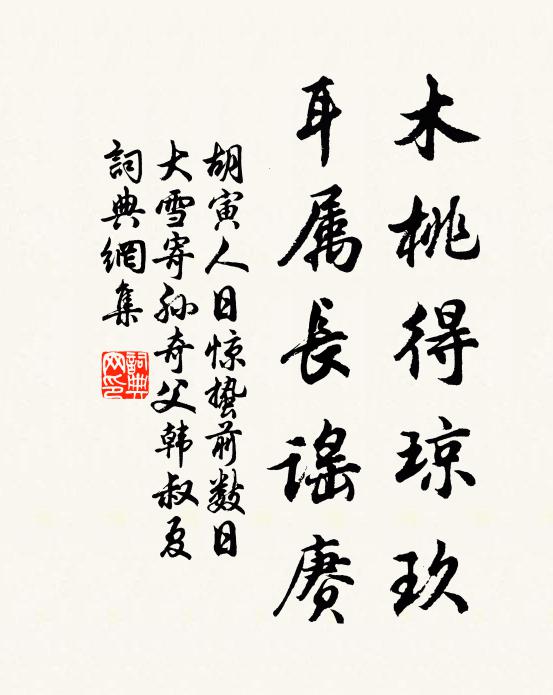 木桃得琼玖
耳属長謡赓
胡寅人日惊蛰前数日
大雪寄孙奇父韩叔夏
詞典網集
詞典网印